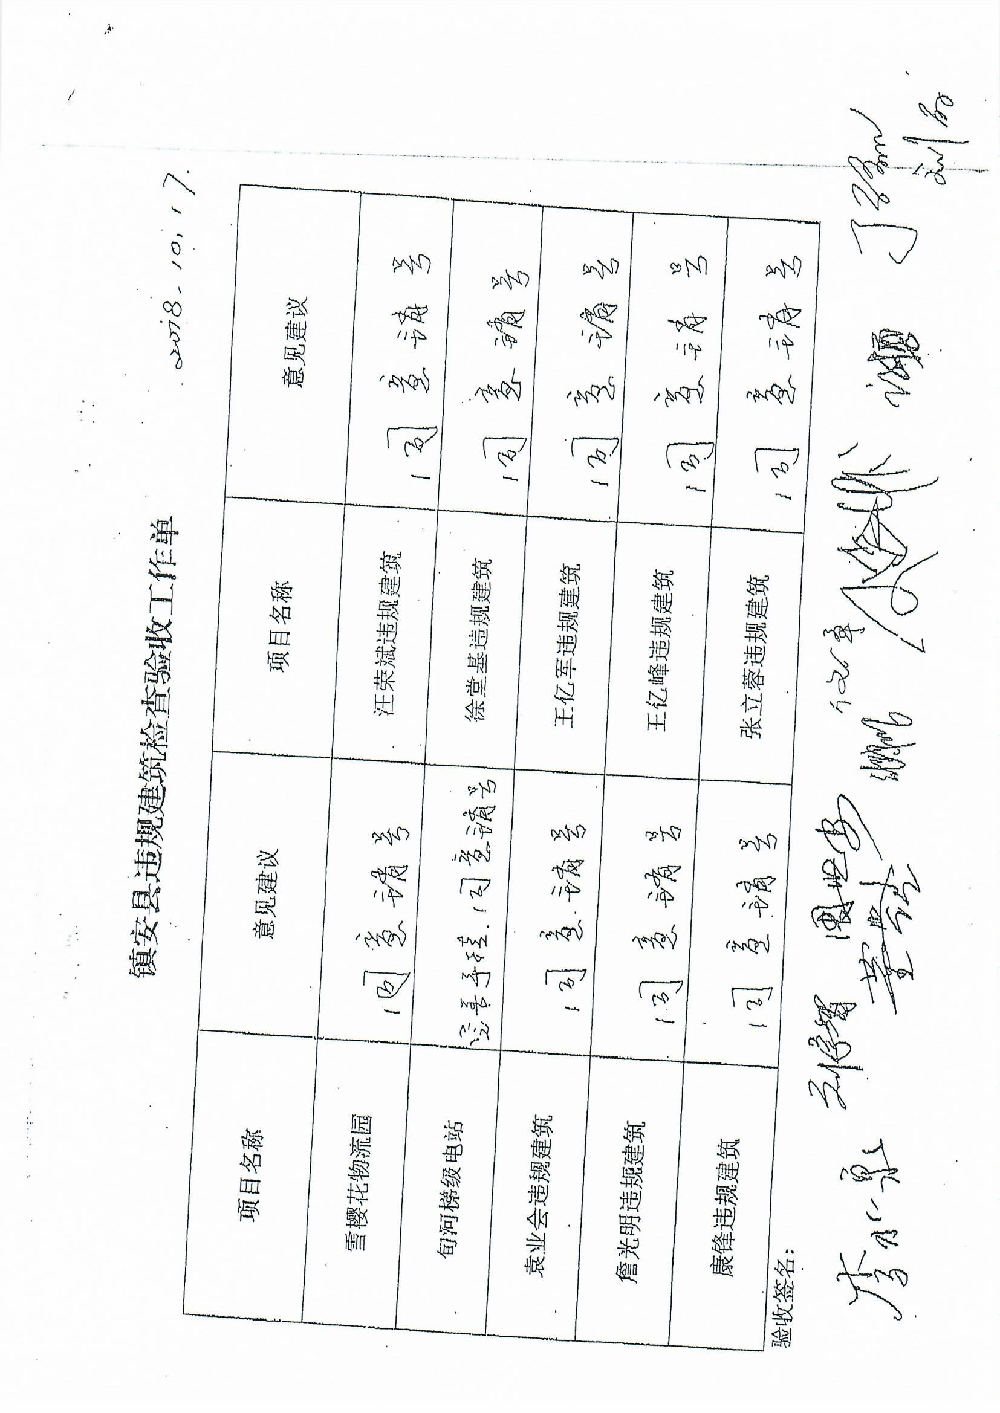 镇安县违规建筑检查验收工作单
2018.10.17.
项目名称 意见建议 项目名称 意见建议
雪樱花物流园 同意销号 汪荣斌违规建筑 同意销号
旬河梯级电站 完善手续.同意销号 徐堂基违规建筑 同意销号
袁业会违规建筑 同意销号 王亿军违规建筑 同意销号
詹光明违规建筑 同意销号 王钇峰违规建筑 同意销号
康锋违规建筑 同意销号 张立蓉违规建筑 同意销号
验收签名: